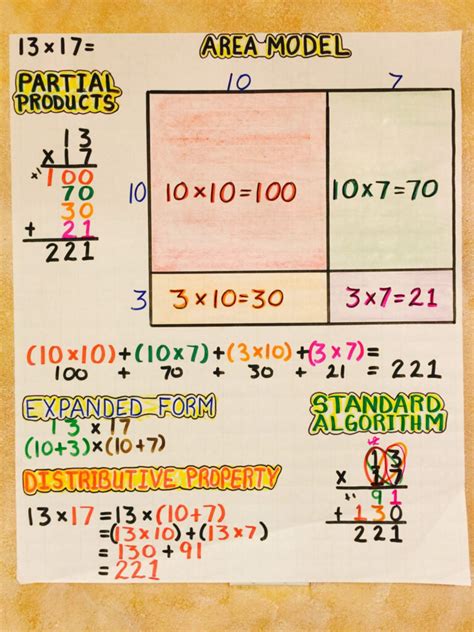 13×17=
AREA MODEL
PARTIAL
PRODUCTS
13
×17
100
70
30
+ 21
221
10 7
10 10×10=100 10×7=70
3 3×10=30 3×7=21
(10×10)+(10×7)+(3×10)+(3×7)=
100 + 70 + 30 + 21 = 221
EXPANDED FORM
13×17
(10+3)×(10+7)
STANDARD
ALGORITHM
13
× 17
91
+130
221
DISTRIBUTIVE PROPERTY
13×17=13×(10+7)
=(13×10)+(13×7)
=130+91
=221